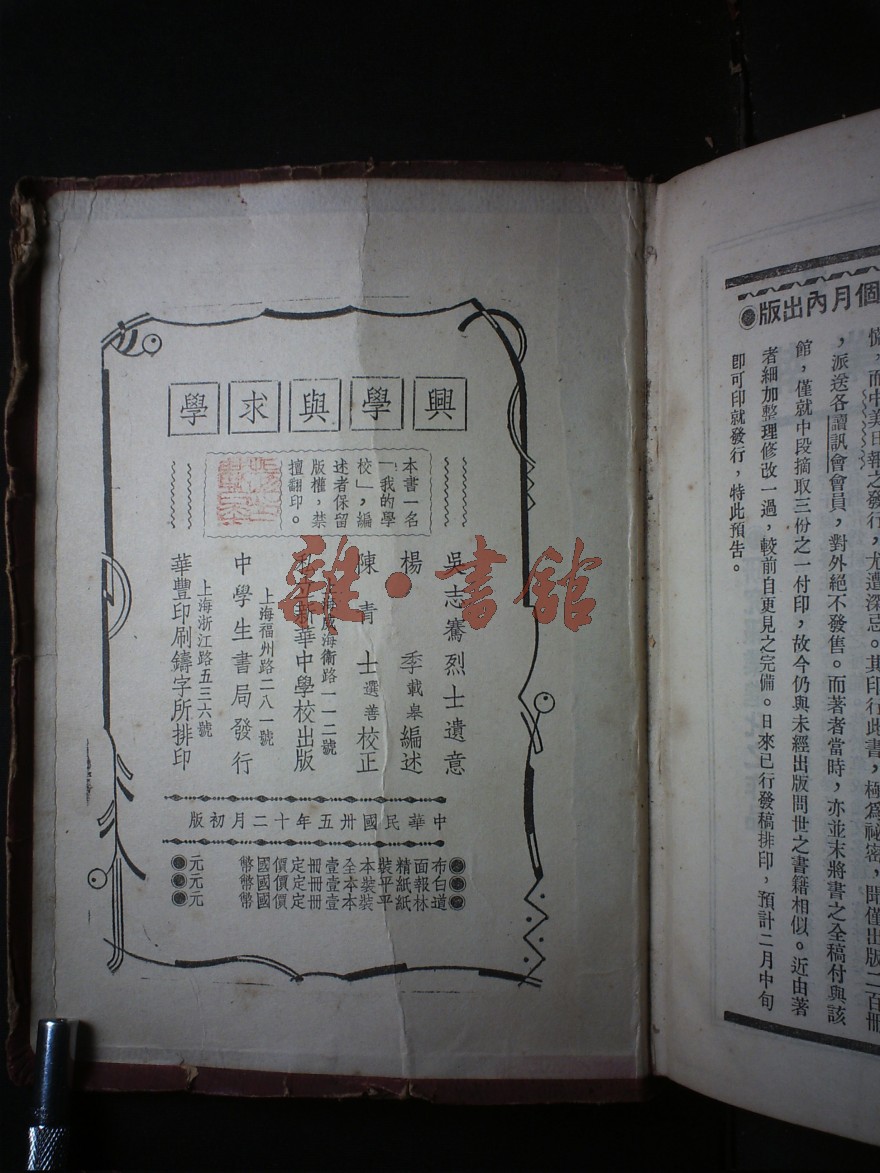 個月內出版●
慌，而中美日報之發行，尤遭深忌。其印行此書，極爲祕密，時僅出版二百冊
，派送各讀訊會會員，對外絕不發售。而著者當時，亦並未將書之全稿付與該
館，僅就中段摘取三份之一付印，故今仍與未經出版問世之書籍相似。近由著
者細加整理修改一過，較前自更見之完備。日來已行發稿排印，預計二月中旬
即可印就發行，特此預告。
興學與求學
本書一名
「我的學
校」，編
述者保留
版權，禁
擅翻印。
吳志騫烈士遺意
楊季載臯編述
陳青士選善校正
上海威海衛路一一二號
私立新華中學校出版
上海福州路二八一號
中學生書局發行
上海浙江路五三六號
華豐印刷鑄字所排印
中華民國卅五年十二月初版
●布面精裝本全壹冊定價國幣 元●
●白報紙平裝本壹冊定價國幣 元●
●道林紙平裝本壹冊定價國幣 元●
雜·書館